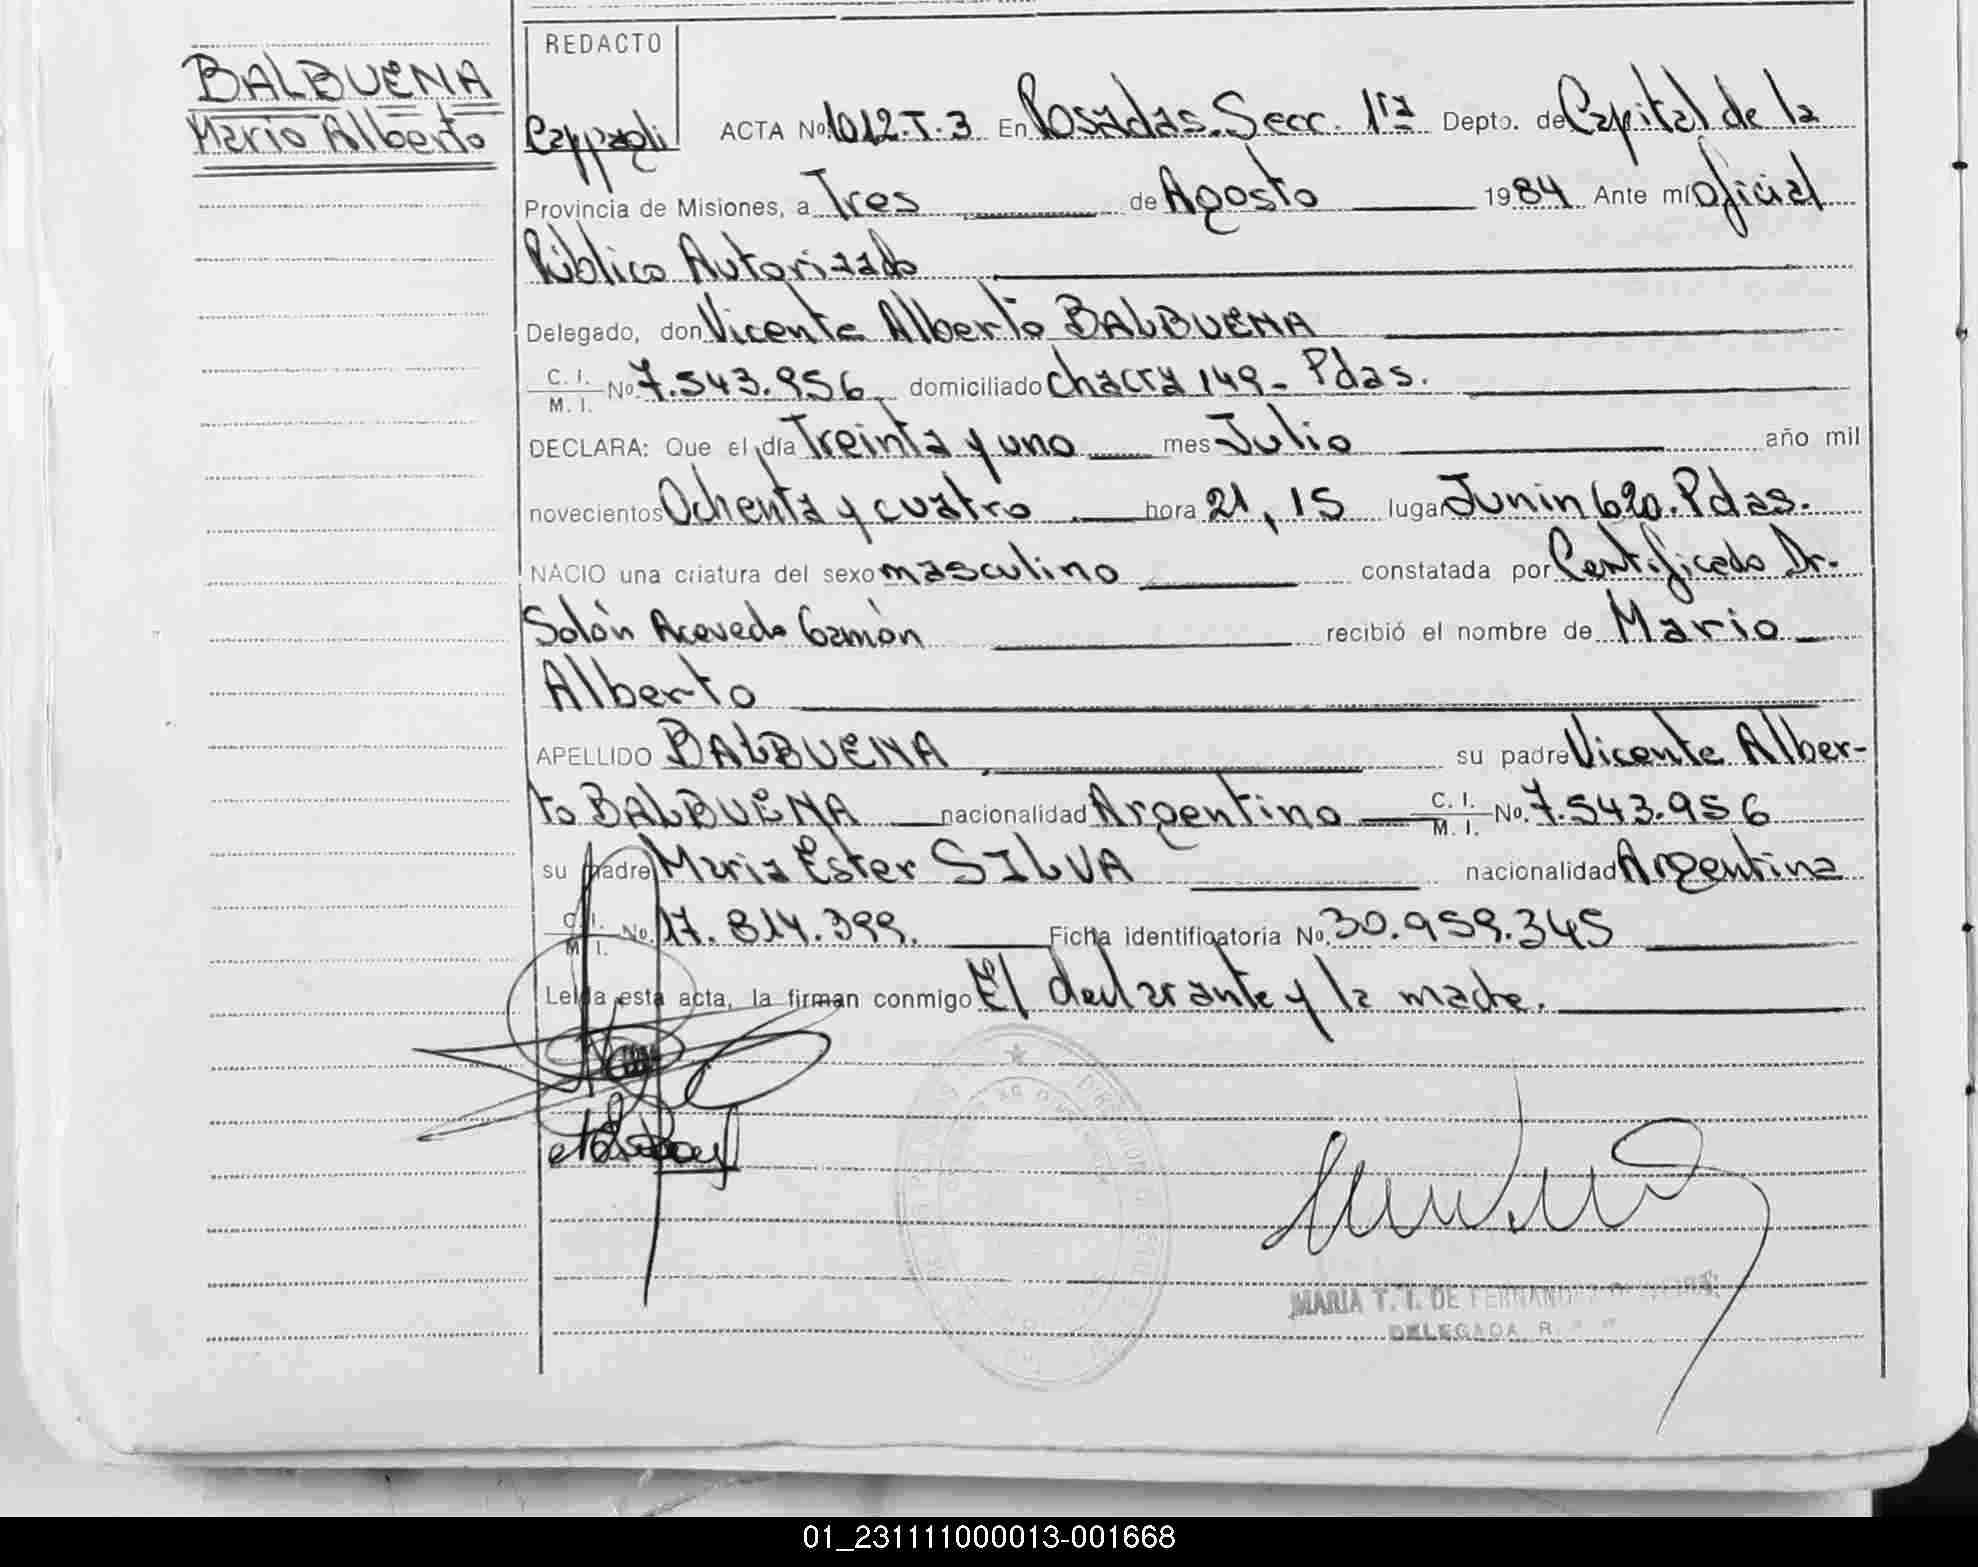 BALBUENA
Mario Alberto
REDACTO
ACTA Nº 1012.T.3 En Posadas. Secc. 1ra Depto. de Capital de la
Provincia de Misiones, a Tres de Agosto 1984 Ante mí Oficial
Público Autorizado
Delegado, don Vicente Alberto BALBUENA
C. I. / M. I. Nº 7.543.956 domiciliado chacra 149- Pdas.
DECLARA: Que el día Treinta y uno mes Julio año mil
novecientos Ochenta y cuatro hora 21,15 lugar Junin 620. Pdas.
NACIO una criatura del sexo masculino constatada por Certificado Dr.
Solón Acevedo Gamón recibió el nombre de Mario
Alberto
APELLIDO BALBUENA su padre Vicente Alber-
to BALBUENA nacionalidad Argentino C. I. / M. I. Nº 7.543.956
su madre Maria Ester SILVA nacionalidad Argentina
C. I. / M. I. Nº 17.814.399. Ficha identificatoria Nº 30.959.345
Leída esta acta, la firman conmigo El declarante y la madre.
MARIA T. I. DE
DELEGADA R.
01_231111000013-001668